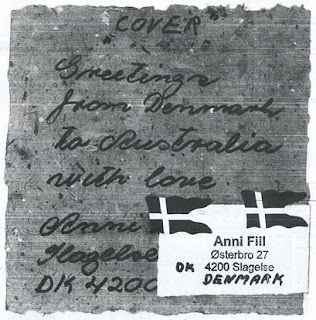 "COVER"
Greetings
from Denmark
to Australia
with love
Anni
Slagelse
DK 4200
Anni Fiil
Østerbro 27
DK 4200 Slagelse
DENMARK